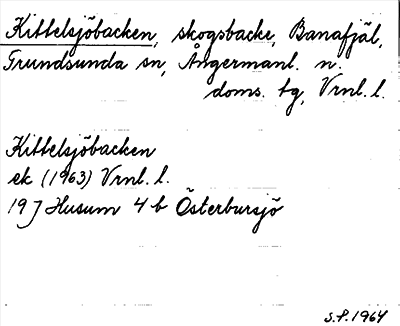 Kittelsjöbacken, skogsbacke, Banafjäl,
Grundsunda sn, Ångermanl. n.
doms. tg, Vrnl. l.
Kittelsjöbacken
ek (1963) Vrnl. l.
19 J Husum 4 b Österbursjö
S.P. 1964